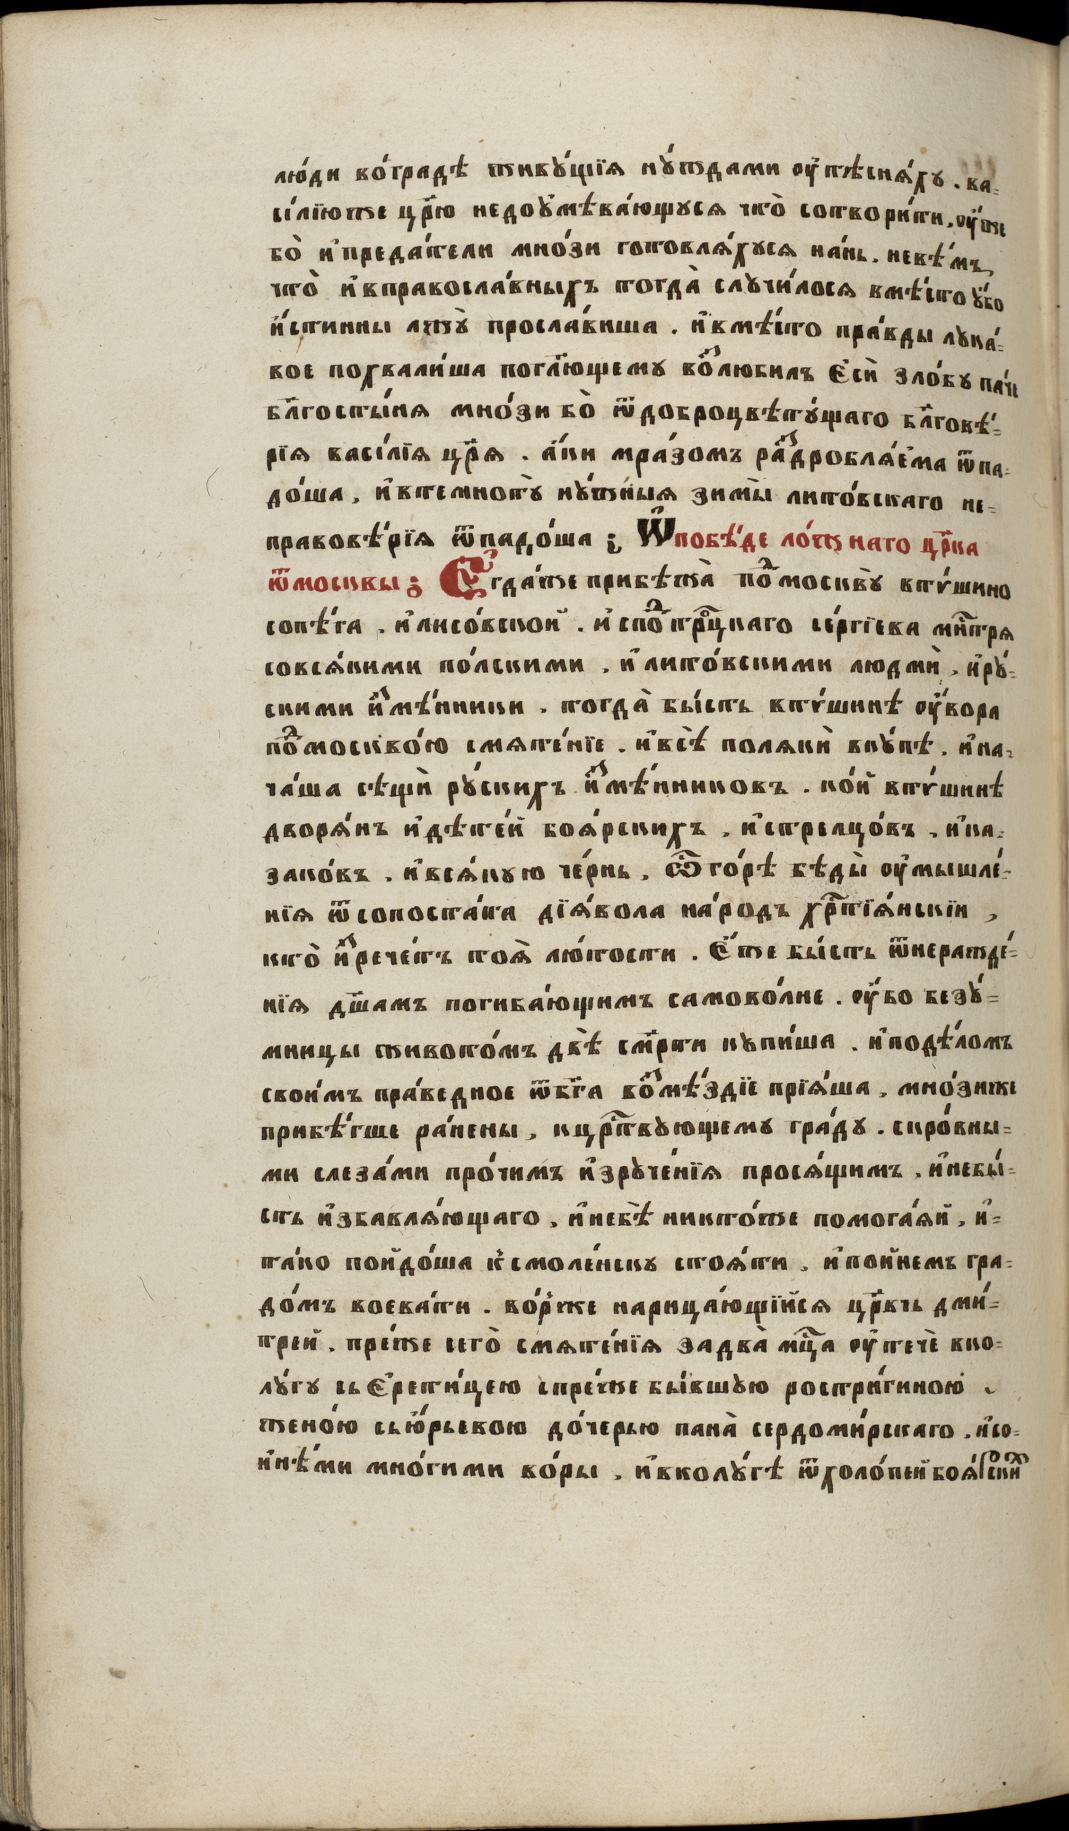 лю́ди во́градѣ живꙋ́щїѧ нꙋ́ждами ᲂу҆тѣснѧ́хꙋ . ва-
сі́лїюже цр҃ю недоꙋмѣва́ющꙋсѧ что̀ сотвори́ти . ᲂу҆́же
бо̀ и҆преда́тели мно́зи гото́влѧхꙋсѧ на́нь . невѣ́мъ
что̀ и҆вправосла́вныхъ тогда̀ слꙋчи́лосѧ вмѣ́сто ᲂу҆́бо
и҆́стинны лжꙋ̀ просла́виша . и҆вмѣ́сто пра́вды лꙋка́-
вое похвали́ша погл҃ющемꙋ воⷥлюбилъ є҆сѝ зло́бꙋ па́че
бл҃госты́нѧ мно́зи бо̀ ѿдоброцвѣтꙋ́щаго бл҃говѣ́-
рїѧ васі́лїѧ цр҃ѧ . а҆́ки мра́зомъ раⷥдроблѧ́ема ѿпа-
до́ша , и҆втемнотꙋ̀ нꙋ́жныѧ зимы̀ лито́вскаго не-
правовѣ́рїѧ ѿпадо́ша ; Ѡ҆побѣ́де ло́жнаго цр҃ка
ѿмосквы ; Є҆гда́же прибѣжа̀ поⷣмосквꙋ̀ втꙋ́шино
сопѣ́га . и҆лисо́вской . и҆споⷣтро́цкаго се́ргїева мнⷭ҇трѧ
совсѧ́кими по́лскими , и҆лито́вскими людмѝ , и҆рꙋ́-
скими и҆ⷥмѣ́нники . тогда̀ бы́сть втꙋ́шинѣ ᲂу҆́вора
поⷣмоскво́ю смѧте́нїе . и҆всѣ̀ полѧкѝ вкꙋ́пѣ . и҆на-
ча́ша сѣщѝ рꙋ́скихъ и҆ⷥмѣ́нниковъ . ко́й втꙋ́шинѣ
дворѧ́нъ и҆дѣте́й боѧ́рскихъ , и҆стрелцо́въ , и҆ка-
зако́въ . и҆всѧ́кꙋю че́рнь , Ѽго́рѣ бѣды̀ ᲂу҆мышле́-
нїѧ ѿсопоста́та дїѧ́вола на́родъ хрⷭ҇тїѧ́нскїи ,
кто̀ и҆ⷥрече́тъ тоѧ̀ лю́тости . є҆́же бы́сть ѿнеражде́-
нїѧ дш҃амъ погиба́ющимъ самово́лне . ᲂу҆́бо безꙋ́-
мницы живото́мъ двѣ̀ см҃рти кꙋпи́ша . и҆подѣ́ломъ
свои́мъ пра́ведное ѿбг҃а воⷥмѣ́здїе прїѧ́ша , мно́зиже
прибѣ́гше ра́нены , кцрⷭ҇твꙋющемꙋ гра́дꙋ . скро́вны-
ми слеза́ми про́чимъ и҆зрꙋче́нїѧ просѧ́щимъ . и҆небы́-
сть и҆збавлѧ́ющаго , и҆небѣ̀ никто́же помога́ѧй , и҆-
та́ко пойдо́ша к̾смоле́нскꙋ стоѧ́ти , и҆пойнемъ гра-
до́мъ воева́ти . во́рже нарица́ющїйсѧ цр҃вчь дми́-
трей . пре́же сего̀ смѧте́нїѧ задва̀ мц҃а ᲂу҆течѐ вко-
лꙋ́гꙋ сьє҆рети́цею спре́же бы́вшꙋю рострі́гиною
жено́ю сью҆́рьевою до́черью пана̀ сердоми́рскаго . и҆со-
и҆нѣ́ми мно́гими во́ры , и҆вколꙋ́гѣ ѿхоло́пей боѧ́рскиⷯ